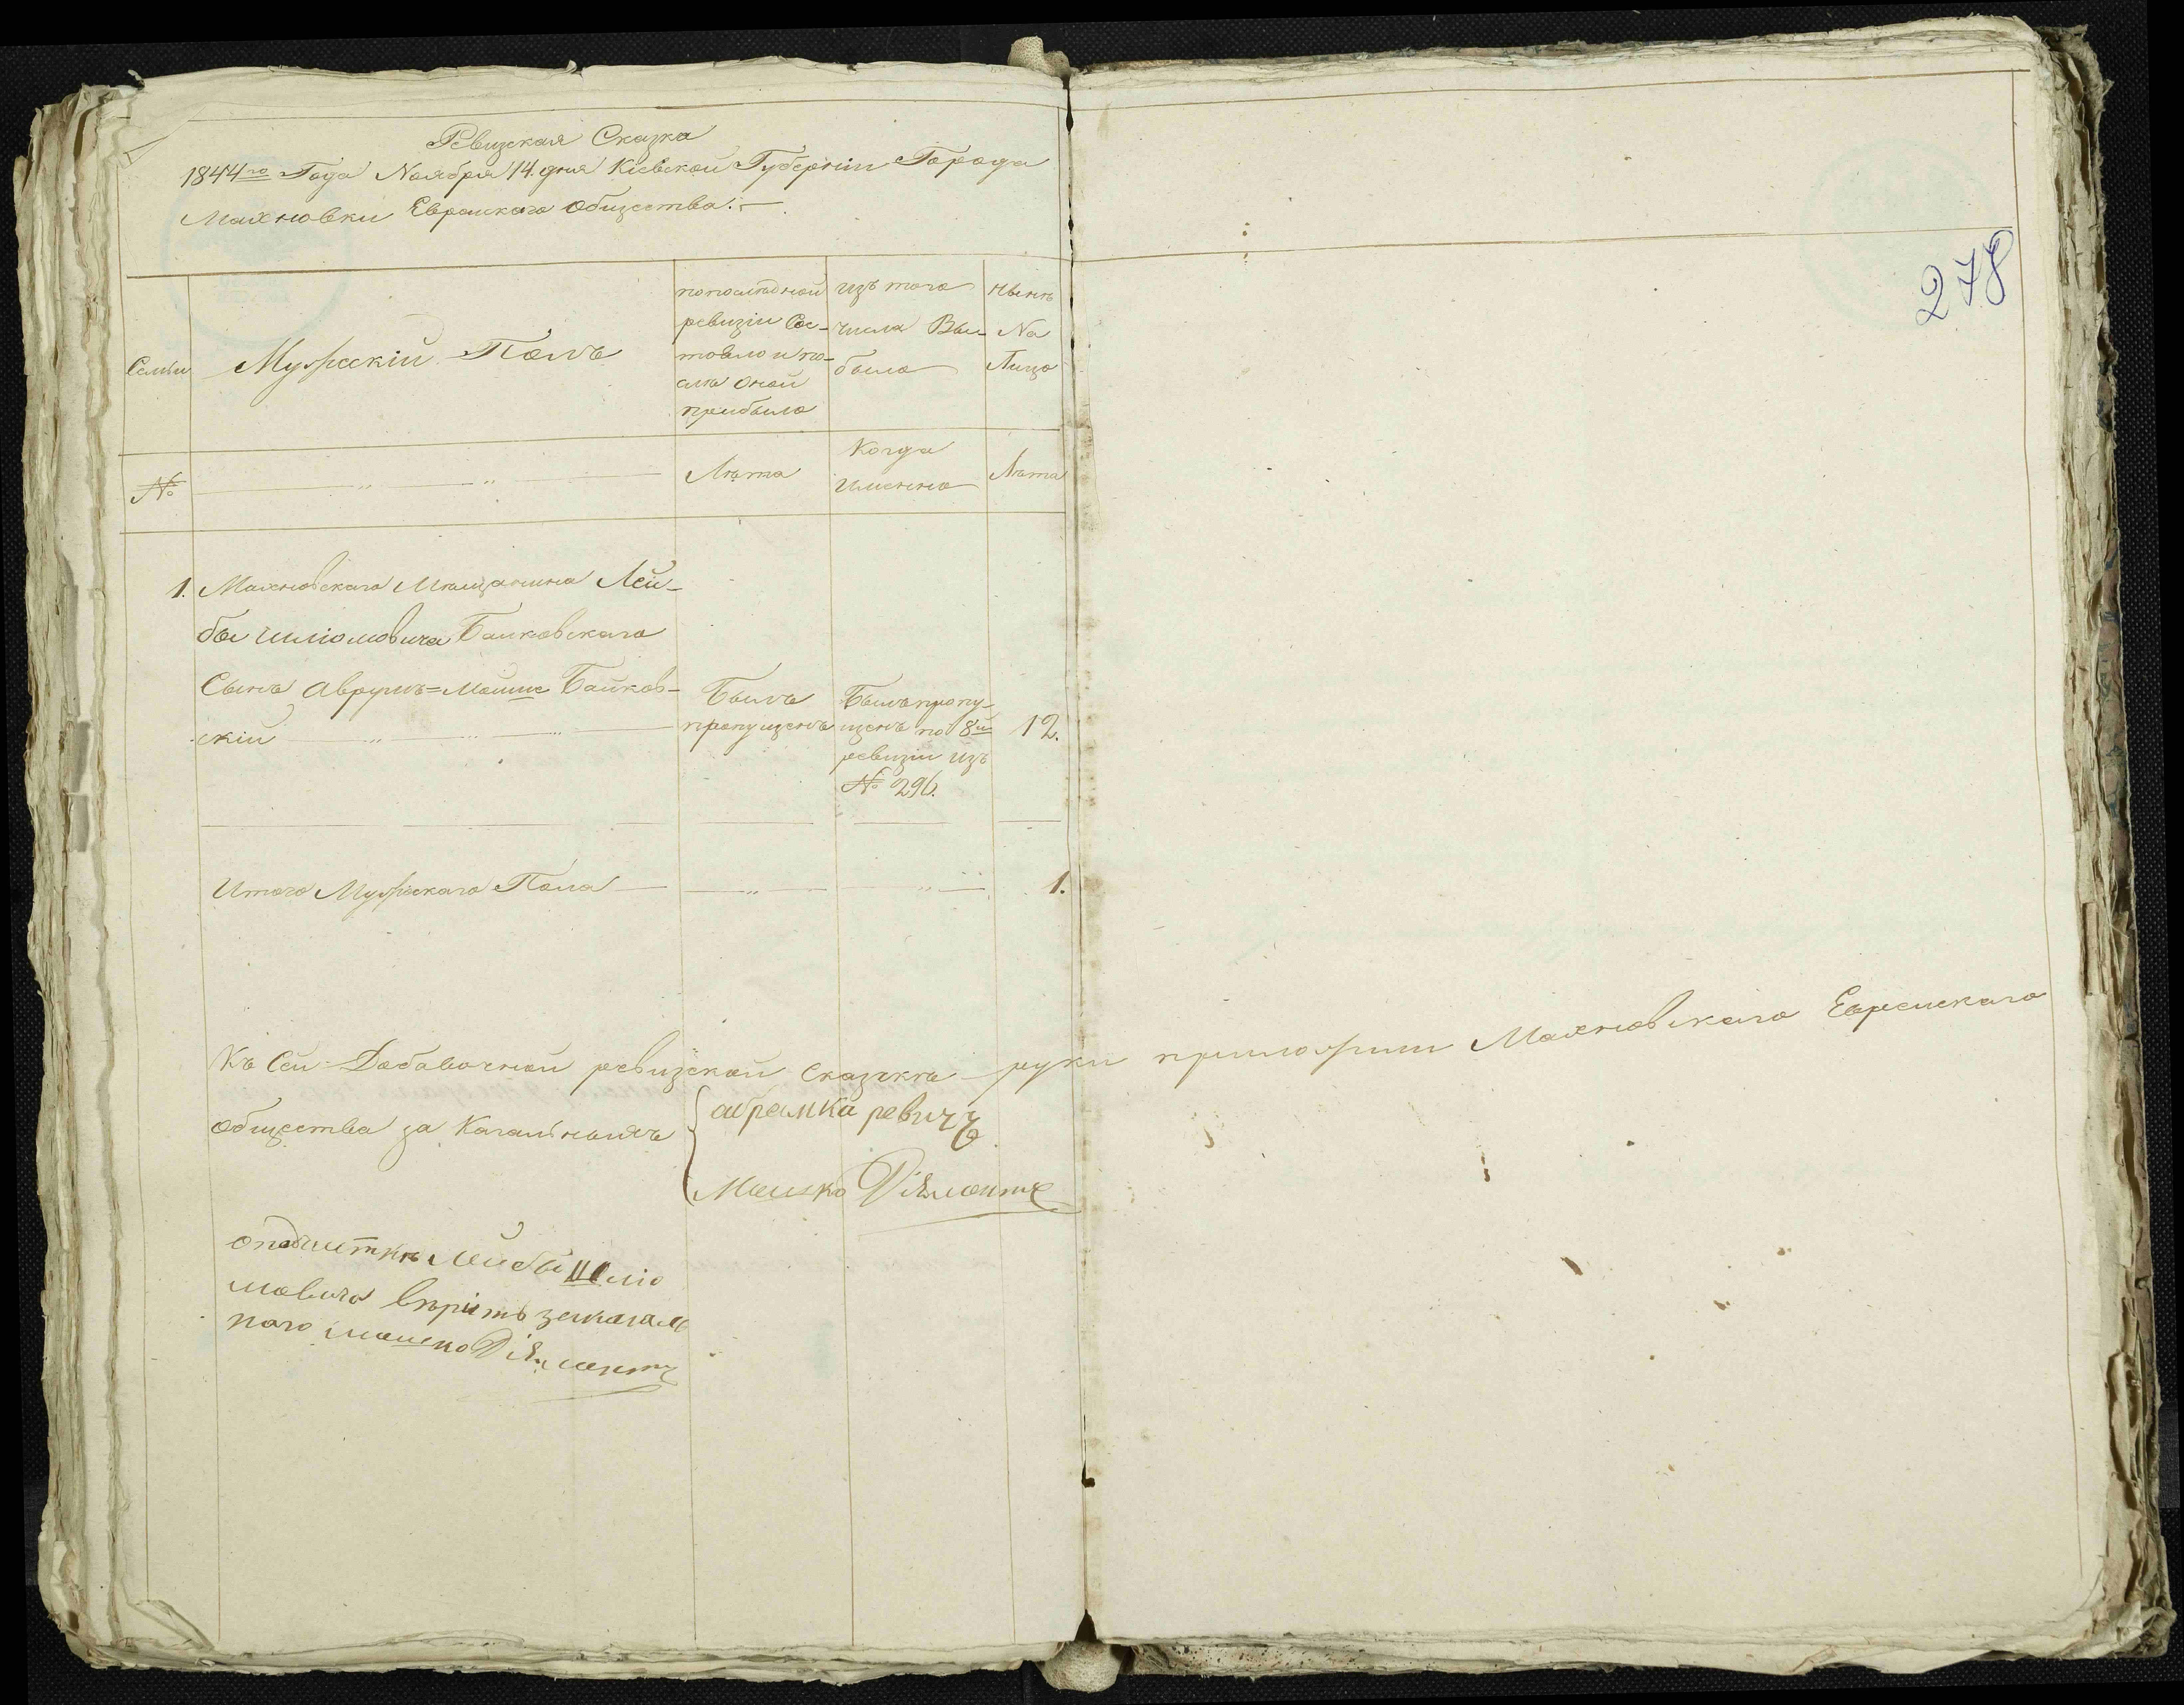 Ревизская Сказка
1844го Года Ноября 14. дня Кіевской Губерніи Города
Махновки Еврейскаго Общества:—
278
Семьи
Мужескій Полъ
по последней ревизіи Сос-
тояло и по-
слѣ оной
прибыло
изъ того
числа Вы-
было
Нынѣ
На
Лицо
№
Лѣта
Когда
именно
Лѣта
1. Махновскаго Мѣщанина Лей-
бы Шліомовича Байковскаго
Сынъ Аврумъ=Мошие Байков-
скій
Былъ
пропущенъ
Былъ пропу-
щенъ по 8й
ревизіи изъ
№ 296.
12.
Итого Мужескаго Пола
1.
Къ Сей Добавочной ревизской сказкѣ руки приложили Махновскаго Еврейскаго
Общества за Кагальныхъ
абрамка ревичъ
Мошко Діямантъ
оподчисткѣ Лейбы Шліо
мовича вѣрить закагаль
наго мошко Діямантъ